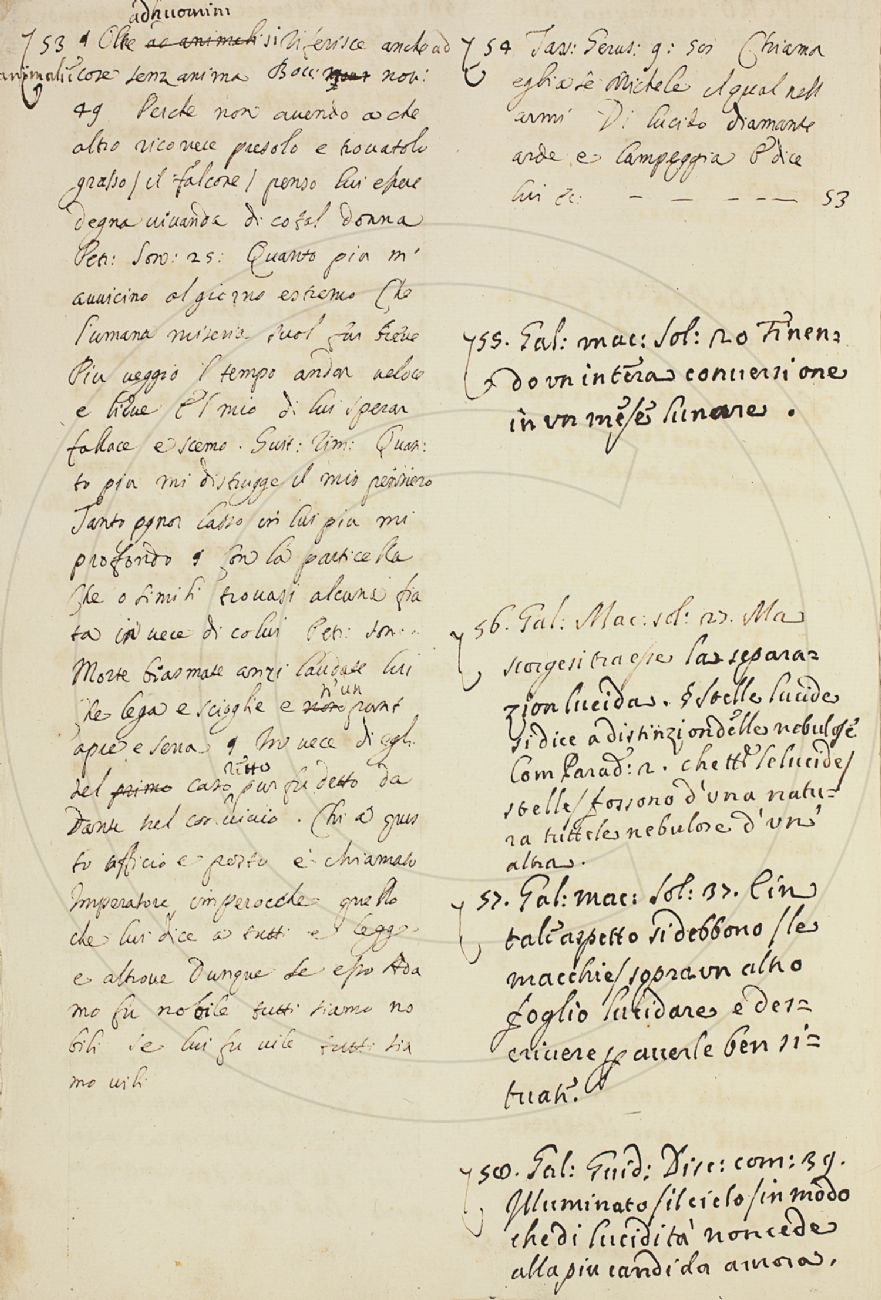 ad huomini
53 ¶ Oltre ac animali si riferisce anche ad
animali e cose senz anima Bocc: nov:
49 Perche non avendo a che
altro ricorrere presolo e trovatolo
grasso / il falcone / penso lui essere
degna vivanda di cotal donna
Petr: Son: 25: Quanto piu m'
avvicino al giorno estremo Che
l'umana miseria suol far breve
Piu veggio il tempo andar veloce
e lieve E'l mio di lui sperar
fallace e scemo. Gust: rim: Quan-
to piu mi distrugge il mio pensiero
Tanto ognor lasso in lui piu mi
profondo ¶ Con la particella
Che o simili trovasi alcuna fia
ta in vece di colui Petr: son:
Morte biasmate anzi laudate lui
n' un
Che lega e scioglie e non punt
apre e serra ¶ In vece di egli
retto
del primo caso pur fu detto da
Dante nel convivio. Chi a ques
to officio e posto e chiamato
Imperatore imperocche quello
che lui dice a tutti e legge
e altrove Dunque se esso Ada
mo fu nobile tutti siamo no
bili se lui fu vile tutti sia
mo vili
54 Tass: Gerus: 9: 58 Chiama
egli a sé Michele il qual nell
armi Di lucido diamante
arde e lampeggia E dice
lui &c: — — — — — 53
55. Gal: mac: Sol: 20 Finen=
do un intera conversione
in un mese lunare.
56. Gal: Mac: sol: 27. Ma
scorgesi tra esse la separa=
zion lucida. § Stelle lucide
si dice a distinzion delle nebulose
Com Parad: 2. che tt se lucide /
stelle / fossono d'una natu=
ra tutte le nebulose d'un'
altra.
57. Gal: mac: Sol: 37. E in
tale aspetto si debbono / le
macchie / sopra un altro
foglio lucidare e des=
crivere p averle ben si=
tuate.
58. Gal: Guid: Disc: com: 39.
Illuminato / il cielo / in modo
che di lucidità non cede
alla piu candida aurora.